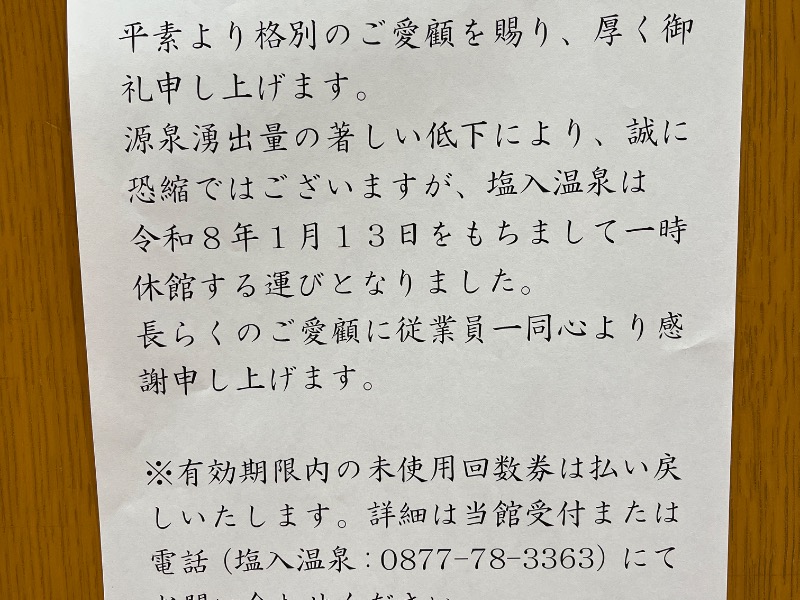 平素より格別のご愛顧を賜り、厚く御
礼申し上げます。
源泉湧出量の著しい低下により、誠に
恐縮ではございますが、塩入温泉は
令和８年１月１３日をもちまして一時
休館する運びとなりました。
長らくのご愛顧に従業員一同心より感
謝申し上げます。
※有効期限内の未使用回数券は払い戻
しいたします。詳細は当館受付または
電話（塩入温泉：0877-78-3363）にて